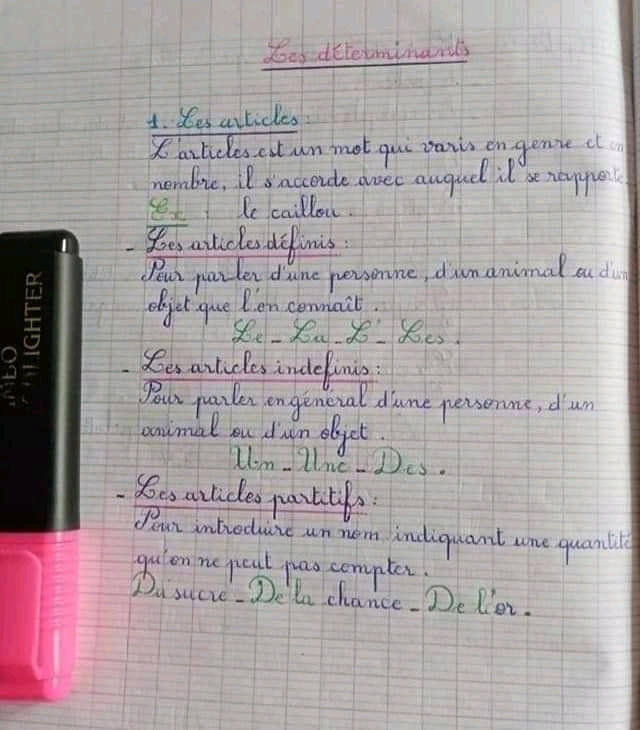 Les déterminants
1. Les articles :
L'articles est un mot qui varis en genre et en
nombre, il s'accorde avec auquel il se rapporte.
Ex : le caillou.
- Les articles définis :
Pour parler d'une personne, d'un animal ou d'un
objet que l'on connaît.
Le - La - L' - Les.
- Les articles indefinis :
Pour parler en géneral d'une personne, d'un
animal ou d'un objet.
Un - Une - Des.
- Les articles partitifs :
Pour introduire un nom indiquant une quantité
qu'on ne peut pas compter.
Du sucre - De la chance - De l'or.
LIGHTER